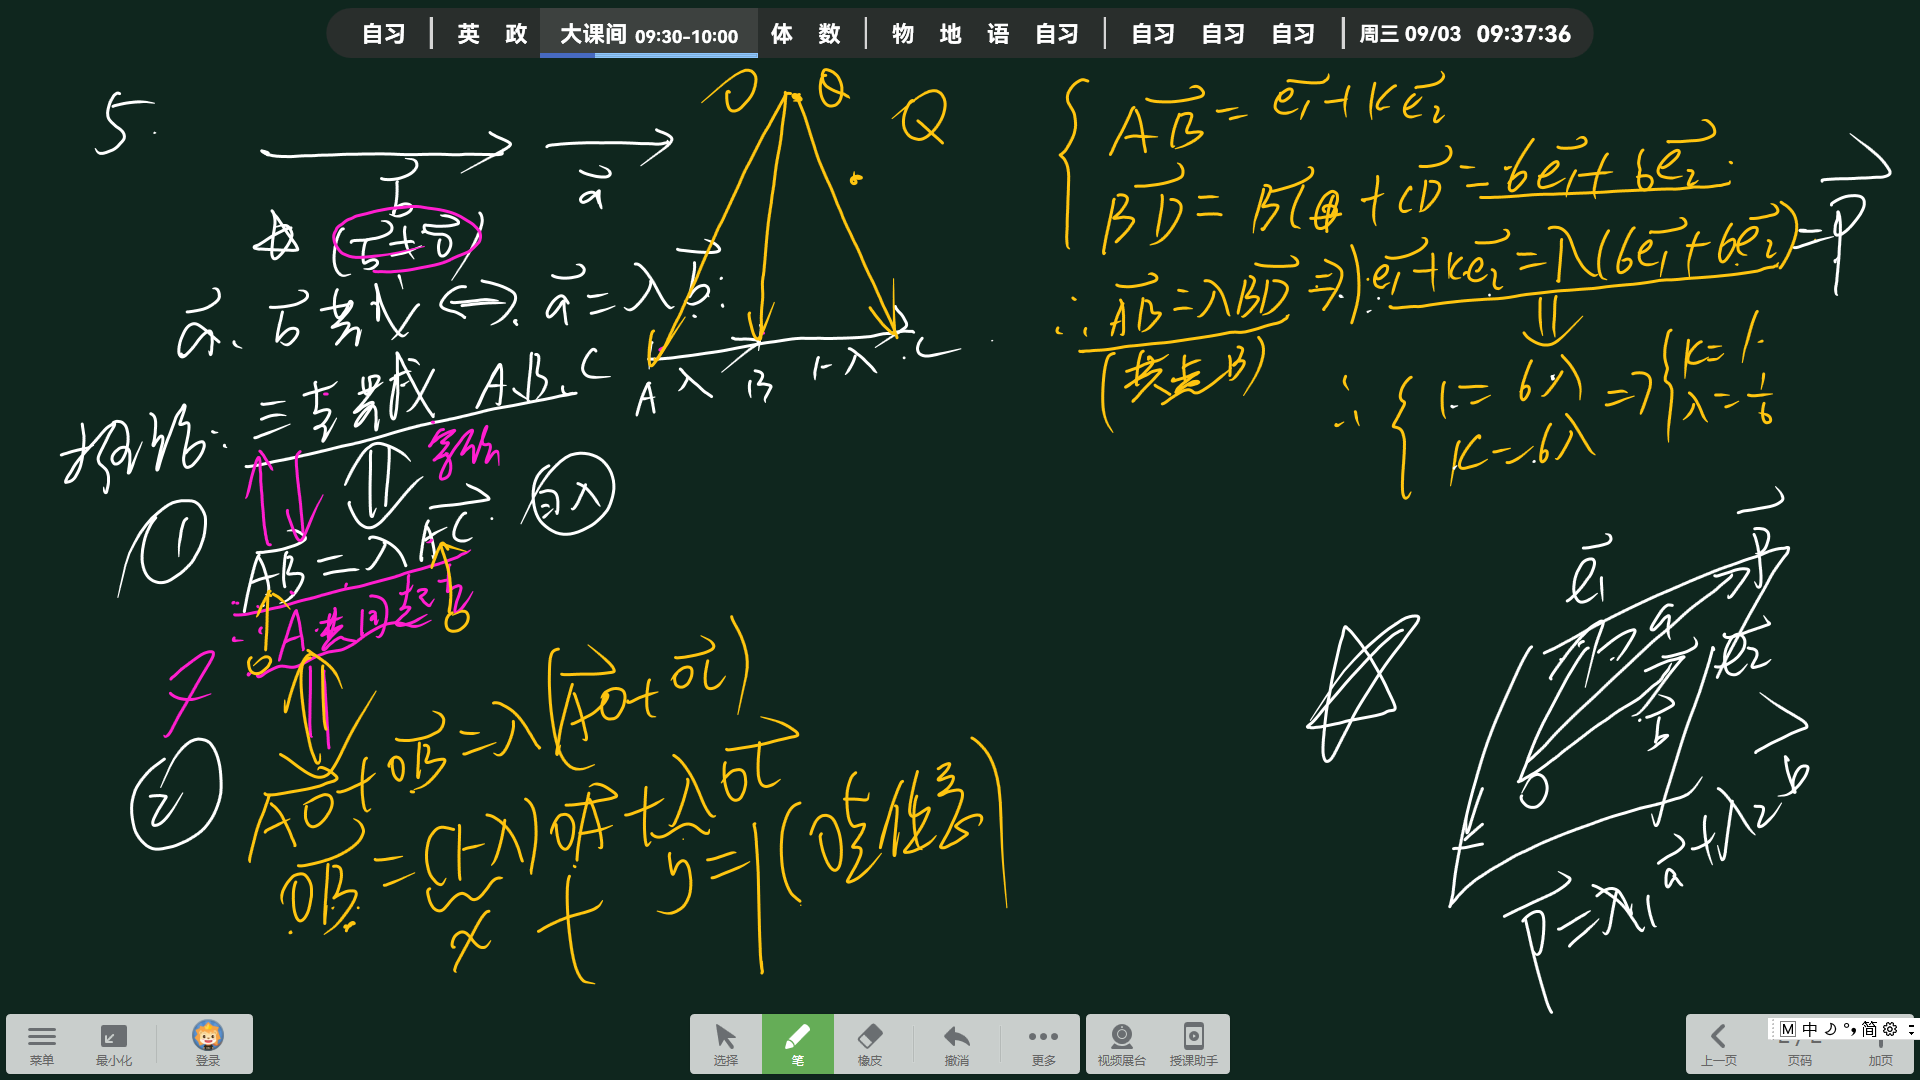 自习 | 英 政 大课间 09:30-10:00 体 数 | 物 地 语 自习 | 自习 自习 自习 | 周三 09/03 09:37:36
5.
b⃗
a⃗
(b⃗≠0⃗)
a⃗、b⃗共线⟺a⃗=λb⃗
推论: 三点共线 A、B、C
字母
① AB⃗=λAC⃗ ∃λ
∵A共同起点
O O
②
AO⃗+OB⃗=λ(AO⃗+OC⃗)
OB⃗=(1-λ)OA⃗+λOC⃗
x + y=1 (O是任意)
O Q
Q
A λ B 1-λ C
AB⃗=e₁⃗+Ke₂⃗
BD⃗=BC⃗+CD⃗=6e₁⃗+6e₂⃗
∴AB⃗=λBD⃗⇒e₁⃗+Ke₂⃗=λ(6e₁⃗+6e₂⃗)=P⃗
(共点B)
∴{1=6λ K=6λ ⇒{K=1 λ=1/6
e₁⃗ P⃗
a⃗ e₂⃗
b⃗
O
P⃗=λ₁a⃗+λ₂b⃗
菜单 最小化 登录 选择 笔 橡皮 撤消 更多 视频展台 授课助手 上一页 页码 加页
M 中 简